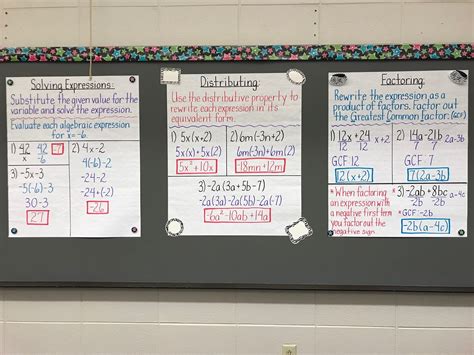 Solving Expressions:
Substitute the given value for the
variable and solve the expression.
Evaluate each algebraic expression
for x=-6
1) 42 42 -7
x -6
2) 4x-2
4(-6)-2
-24-2
-24+(-2)
-26
3) -5x-3
-5(-6)-3
30-3
27
Distributing:
Use the distributive property to
rewrite each expression in its
equivalent form.
1) 5x(x+2)
5x(x) 5x(2)
5x²+10x
2) 6m(-3n+2)
6m(-3n) 6m(2)
-18mn+12m
3) -2a(3a+5b-7)
-2a(3a) -2a(5b) -2a(-7)
-6a²-10ab+14a
Factoring:
Rewrite the expression as a
product of factors. Factor out
the Greatest Common Factor: (GCF)
1) 12x+24 x+2
12 12
GCF: 12
12(x+2)
2) 14a-21b 2a-3b
7 7
GCF: 7
7(2a-3b)
*When factoring
an expression with
a negative first term
you factor out the
negative sign.
3) -2ab+8bc a-4c
-2b -2b
*GCF: -2b
-2b(a-4c)